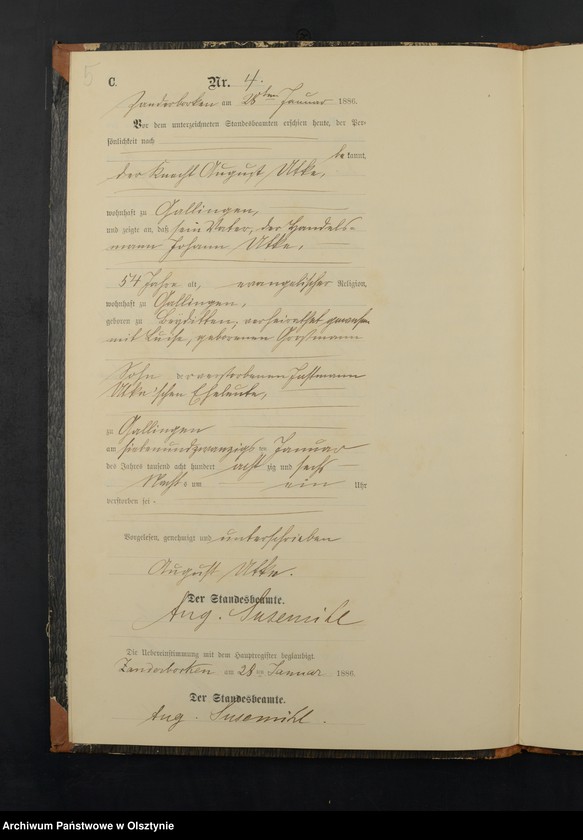 5
C. Nr. 4.
Zanderborken am 28ten Januar 1886.
Vor dem unterzeichneten Standesbeamten erschien heute, der Per-
sönlichkeit nach
be kannt,
der Knecht August Utke,
wohnhaft zu Gallingen,
und zeigte an, daß sein Vater, der Handels-
mann Johann Utke,
54 Jahre alt, evangelischer Religion,
wohnhaft zu Gallingen,
geboren zu verheirathet gewesen
mit Luise, geborenen Großmann
Sohn der verstorbenen Instmann
Utke'schen Eheleute,
zu Gallingen
am siebenundzwanzigsten Januar
des Jahres tausend acht hundert acht zig und sechs
Nachts um ein Uhr
verstorben sei.
Vorgelesen, genehmigt und unterschrieben
August Utke.
Der Standesbeamte.
Aug. Susemihl
Die Uebereinstimmung mit dem Hauptregister beglaubigt
Zanderborken am 28ten Januar 1886.
Der Standesbeamte.
Aug. Susemihl.
Archiwum Państwowe w Olsztynie